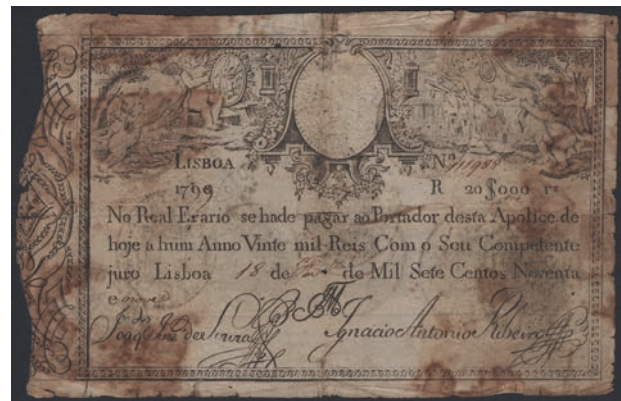 LISBOA Nº 11988
1799 R 20$000 rs
No Real Erario se hade pagar ao Portador desta Apolice de
hoje a hum Anno Vinte mil Reis Com o Seu Competente
juro Lisboa 18 de de Mil Sete Centos Noventa
e nove
Ignacio Antonio Ribeiro